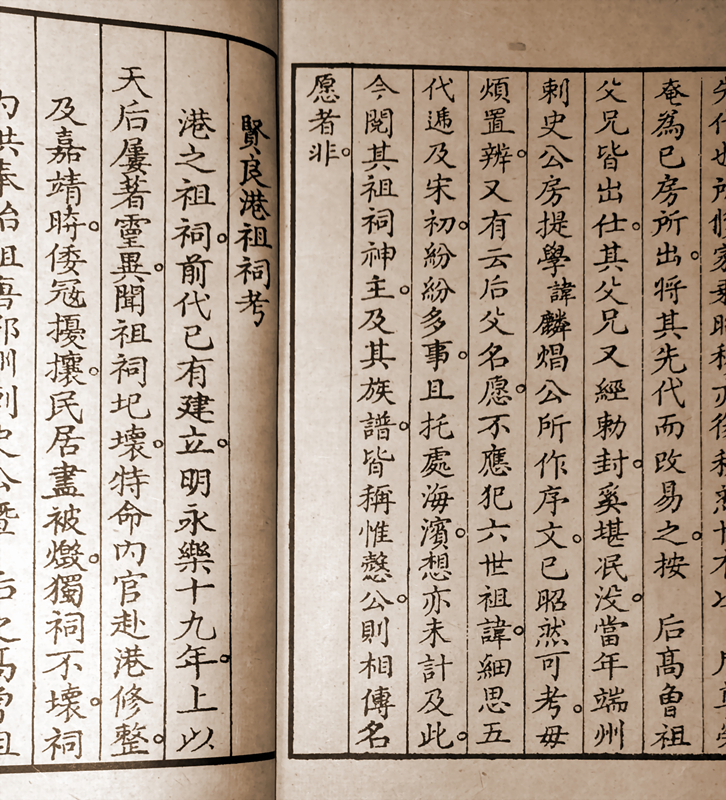 奄為已房所出。將其先代而改易之。按　后髙曾祖
父兄皆出仕。其父兄又經勅封。奚堪泯没。當年端州
刺史公房提學諱麟焻公所作序文。已昭然可考。毋
煩置辨。又有云后父名愿。不應犯六世祖諱。細思五
代遞及宋初。紛紛多事。且托處海濱。想亦未計及此。
今閱其祖祠神主。及其族譜。皆稱惟慤公。則相傳名
愿者非。
賢良港祖祠考
港之祖祠。前代已有建立。明永樂十九年。上以
天后屢著靈異。聞祖祠圮壞。特命內官赴港修整。
及嘉靖時。倭寇擾攘。民居盡被燬。獨祠不壞。祠